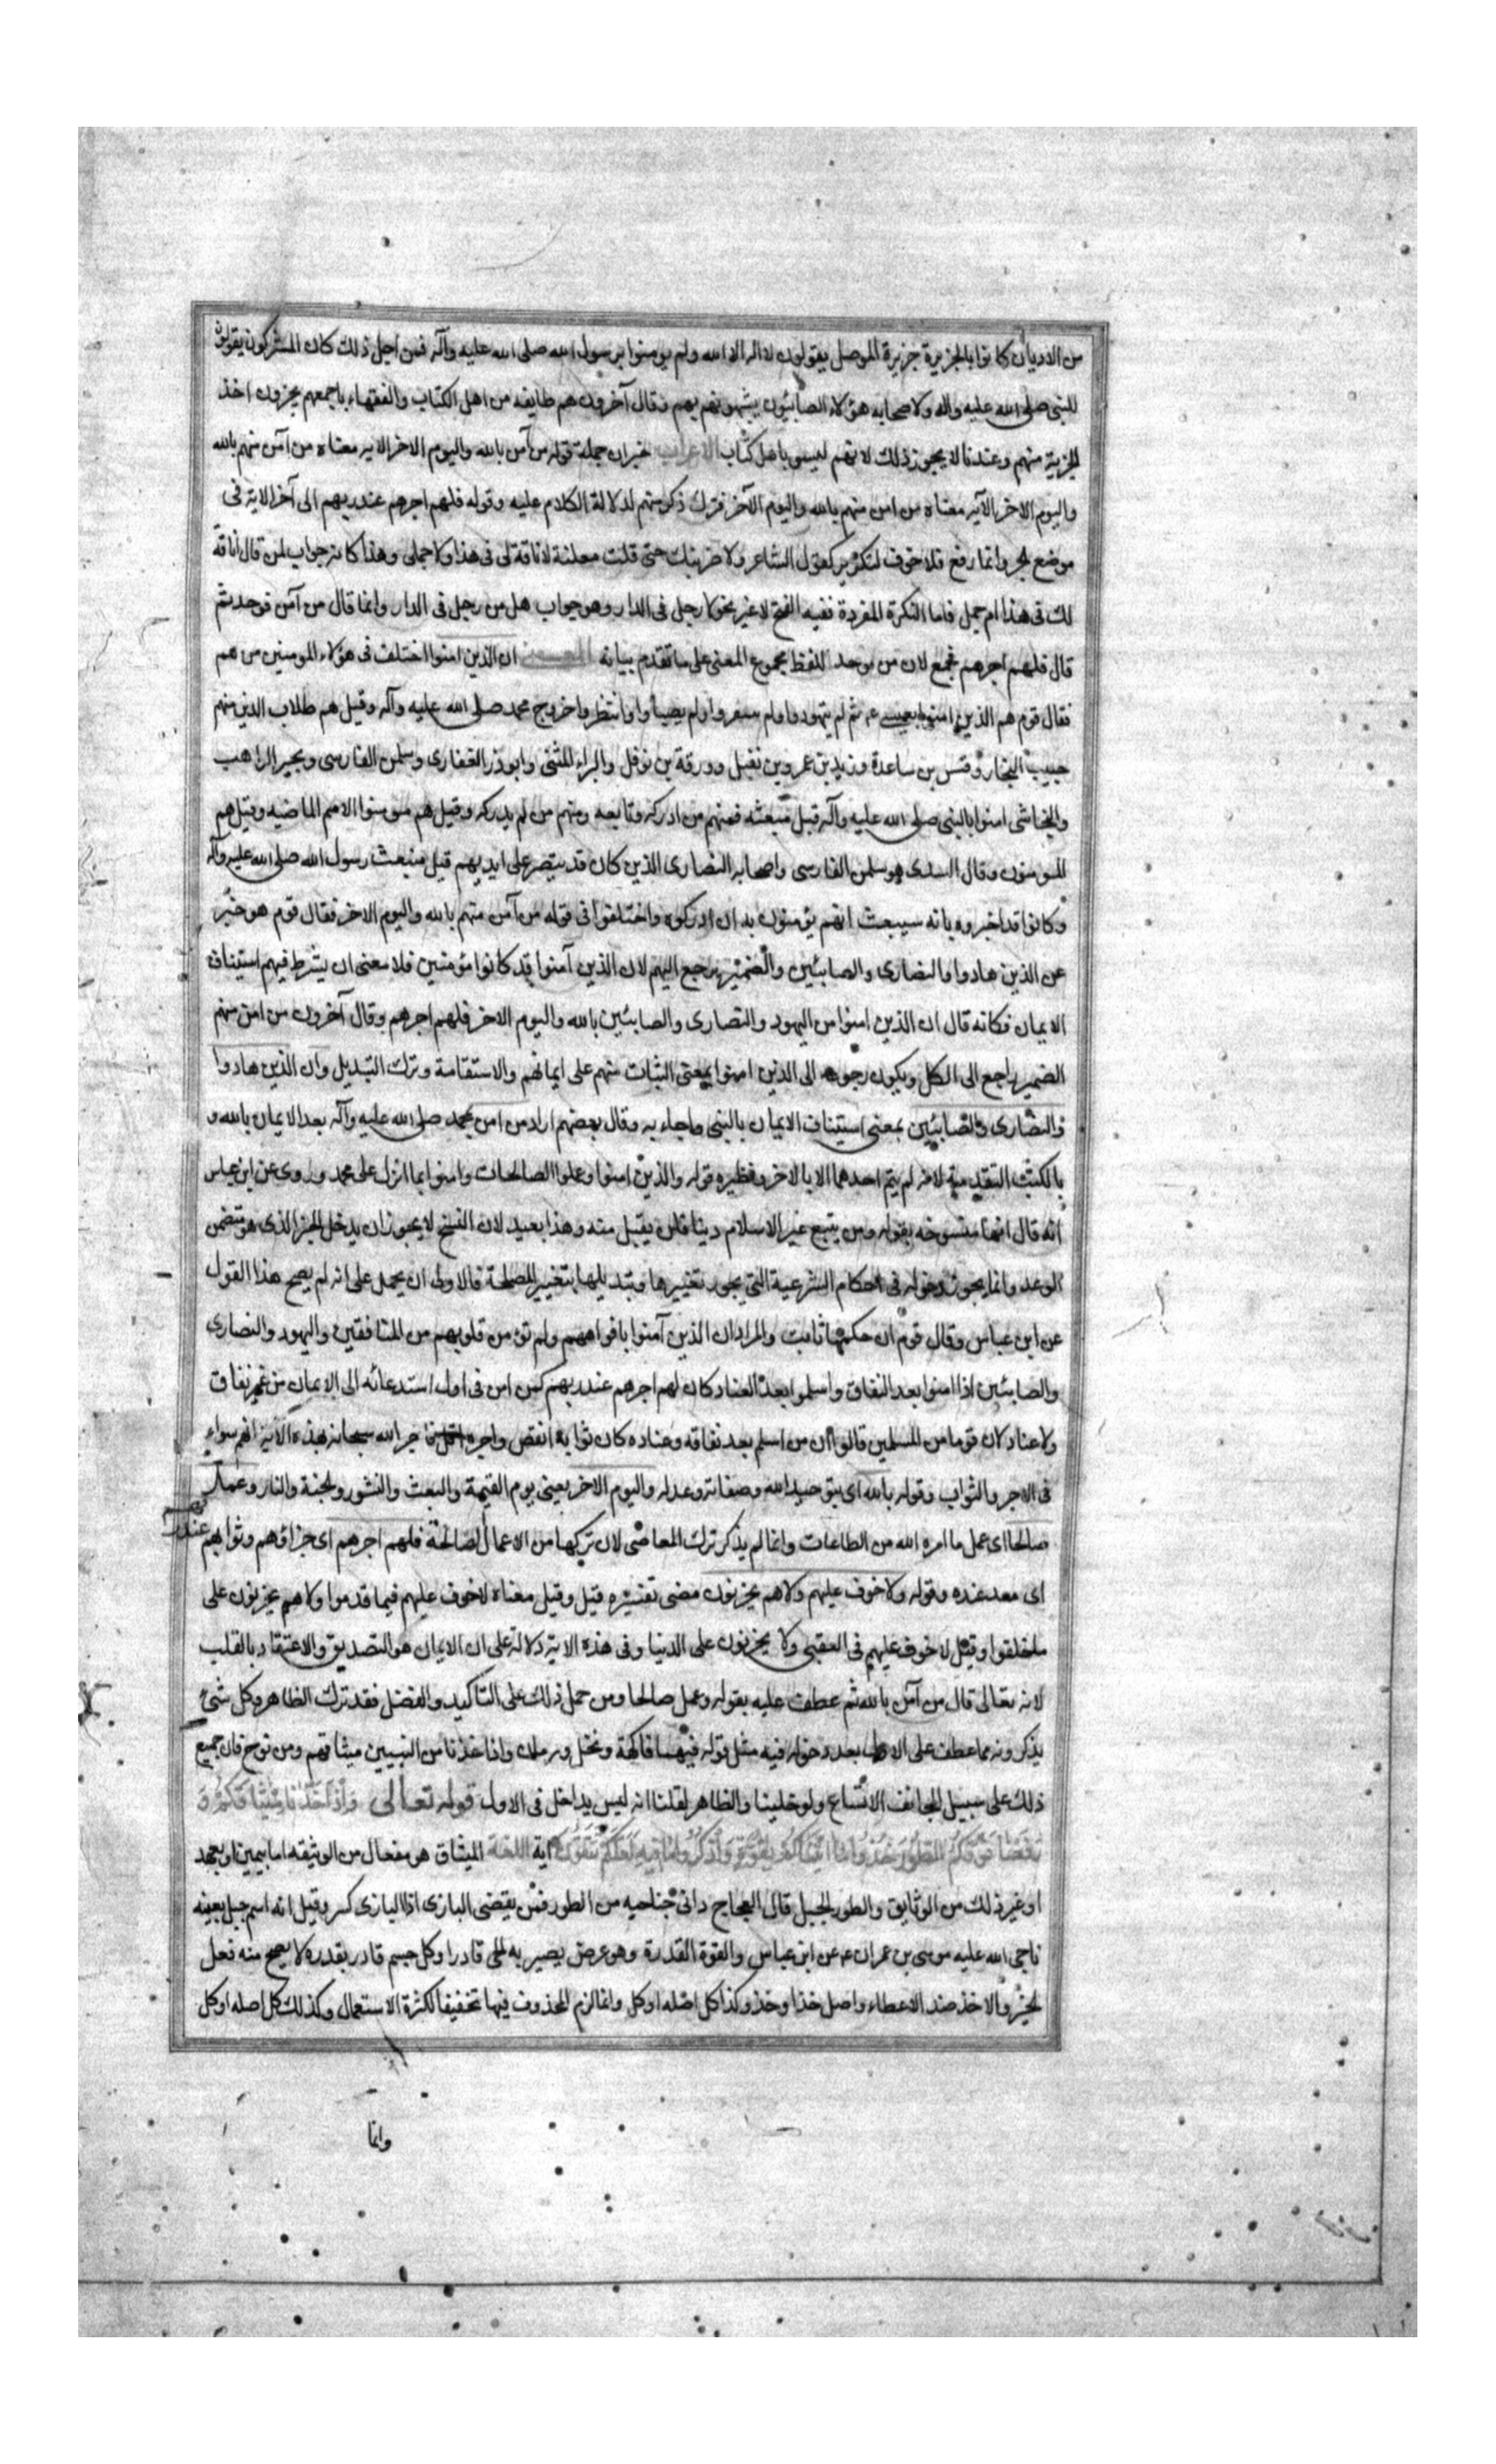 من الاديان كانوا بالجزيرة جزيرة الموصل يقولون لا اله الا الله ولم يومنوا برسول الله صلى الله عليه وآله فمن اجل ذلك كان المشركون يقولون
للنبى صلى الله عليه واله ولاصحابه هؤلاء الصابئون يشبهونهم بهم وقال آخرون هم طايفه من اهل الكتاب والفقهاء باجمعهم يجزون اخذ
الجزية منهم وعندنا لا يجوز ذلك لانهم ليسوا باهل كتاب الاعراب خبر ان جملة قوله من آمن بالله واليوم الاخر الايه معناه من آمن منهم بالله
واليوم الاخر الآيه معناه من امن منهم بالله واليوم الآخر فترك ذكر منهم لدلالة الكلام عليه وقوله فلهم اجرهم عند ربهم الى آخر الاية فى
موضع الجر وانما رفع فلا خوف لتكرير كقول الشاعر ولا حتى قلت معلنة لا ناقة لى فى هذا ولا جملى وهذا كانه جواب لمن قال أناقة
لك فى هذا ام جمل فاما النكرة المفردة ففيه الفتح لا غير نحو لا رجل فى الدار وهو جواب هل من رجل فى الدار وانما قال من آمن فوحد ثم
قال فلهم اجرهم فجمع لان من موحد اللفظ مجموع المعنى على ما تقدم بيانه المعنى ان الذين امنوا اختلف فى هؤلاء المومنين من هم
فقال قوم هم الذين امنوا بعيسى عم ثم لم يتهودوا ولم ولم يصبأوا وانتظروا خروج محمد صلى الله عليه وآله وقيل هم طلاب الدين منهم
حبيب النجار وقس بن ساعدة وزيد بن عمرو بن نفيل وورقة بن نوفل والبراء الشنى وابوذر الغفارى وسلمن الفارسى وبحير الراهب
والنجاشى امنوا بالنبى صلى الله عليه وآله قبل مبعثه فمنهم من ادركه وتابعه ومنهم من لم يدركه وقيل هم مومنوا الامم الماضيه وقيل هم
المومنون وقال السدى هو سلمن الفارسى واصحابه النصارى الذين كان قد يتنصر على ايديهم قبل مبعث رسول الله صلى الله عليه وآله
وكانوا قد اخبروه بانه سيبعث انهم يؤمنون به ان ادركوه واختلفوا فى قوله من آمن منهم بالله واليوم الاخر فقال قوم هو خبر
عن الذين هادوا والنصارى والصابئين والضمير يرجع اليهم لان الذين آمنوا قد كانوا مؤمنين فلا معنى ان يشرط فيهم استيناف
الايمان فكانه قال ان الذين امنوا من اليهود والنصارى والصابئين بالله واليوم الاخر فلهم اجرهم وقال آخرون من امن منهم
الضمير راجع الى الكل ويكون رجوعه الى الذين امنوا بمعنى الثبات منهم على ايمانهم والاستقامة وترك التبديل وان الذين هادوا
والنصارى والصابئين بمعنى استيناف الايمان بالنبى وما جاء به وقال بعضهم اراد من امن بمحمد صلى الله عليه وآله بعد الايمان بالله و
بالكتب المتقدمة لانه لم يتم احدهما الا بالاخر ونظيره قوله والذين امنوا وعملوا الصالحات وامنوا بما انزل على محمد وروى عن ابن عباس
انه قال انها منسوخه بقوله ومن يتبع غير الاسلام دينا فلن يقبل منه وهذا بعيد لان النسخ لا يجوز ان يدخل الخبر الذى هو متضمن
الوعد وانما يجوز دخوله فى احكام الشرعية التى يجوز تغييرها وتبديلها بتغيير المصلحة فالاولى ان يحمل على انه لم يصح هذا القول
عن ابن عباس وقال قوم ان حكمها ثابت والمراد ان الذين آمنوا بافواههم ولم تؤمن قلوبهم من المنافقين واليهود والنصارى
والصابئين اذا امنوا بعد النفاق واسلموا بعد العناد كان لهم اجرهم عند ربهم كمن امن فى اول استدعائه الى الايمان من غير نفاق
ولا عناد لان قوما من المسلمين قالوا ان من اسلم بعد نفاقه وعناده كان ثوابه انقص واجره اقل فاخبر الله سبحانه بهذه الآية انهم سواء
فى الاجر والثواب وقوله بالله اى بتوحيد الله وصفاته وعدله واليوم الاخر يعنى يوم القيمة والبعث والنشور والجنة والنار وعمل
صالحا اى عمل ما امره الله من الطاعات وانما لم يذكر ترك المعاصى لان تركها من الاعمال الصالحة فلهم اجرهم اى جزاؤهم وثوابهم عند ربهم
اى معد عنده وقوله ولا خوف عليهم ولا هم يحزنون مضى تفسيره قبل وقيل معناه لا خوف عليهم فيما قدموا ولا هم يحزنون على
ما خلفوا وقيل لا خوف عليهم فى العقبى ولا يحزنون على الدنيا وفى هذه الاية دلالة على ان الايمان هو التصديق والاعتقاد بالقلب
لانه تعالى قال من آمن بالله ثم عطف عليه بقوله وعمل صالحا ومن حمل ذلك على التاكيد والفضل فقد ترك الظاهر وكل شئ
يذكرونه مما عطف على الاول بعد دخوله فيه مثل قوله فيهما فاكهة ونخل ورمان واذا اخذنا من النبيين ميثاقهم ومن نوح فان جميع
ذلك على سبيل المجاز والاتساع ولو خلينا والظاهر لقلنا انه ليس بداخل فى الاول قوله تعالى وَاِذْ اَخَذْنَا مِيثَاقَكُمْ وَ
رَفَعْنَا فَوْقَكُمُ الطُّورَ خُذُوا مَا اٰتَيْنَاكُمْ بِقُوَّةٍ وَاذْكُرُوا مَا فِيهِ لَعَلَّكُمْ تَتَّقُونَ اية اللغة الميثاق هو مفعال من الوثيقه اما بيمين او بعهد
او غير ذلك من الوثايق والطور الجبل قال العجاج دانى جناحيه من الطور فمر تقضى البازى اذا البازى كسر وقيل انه اسم جبل بعينه
ناجى الله عليه موسى بن عمران عم عن ابن عباس والقوة القدرة وهو عرض يصير به الحى قادرا وكل جسم قادر بقدره لا يصح منه فعل
الجسم والاخذ ضد الاعطاء واصل خذ اوخذ وكذا كل اصله اوكل وانما لزم المحذوف فيها تخفيفا لكثرة الاستعمال وكذلك كل اصله اوكل
وانما